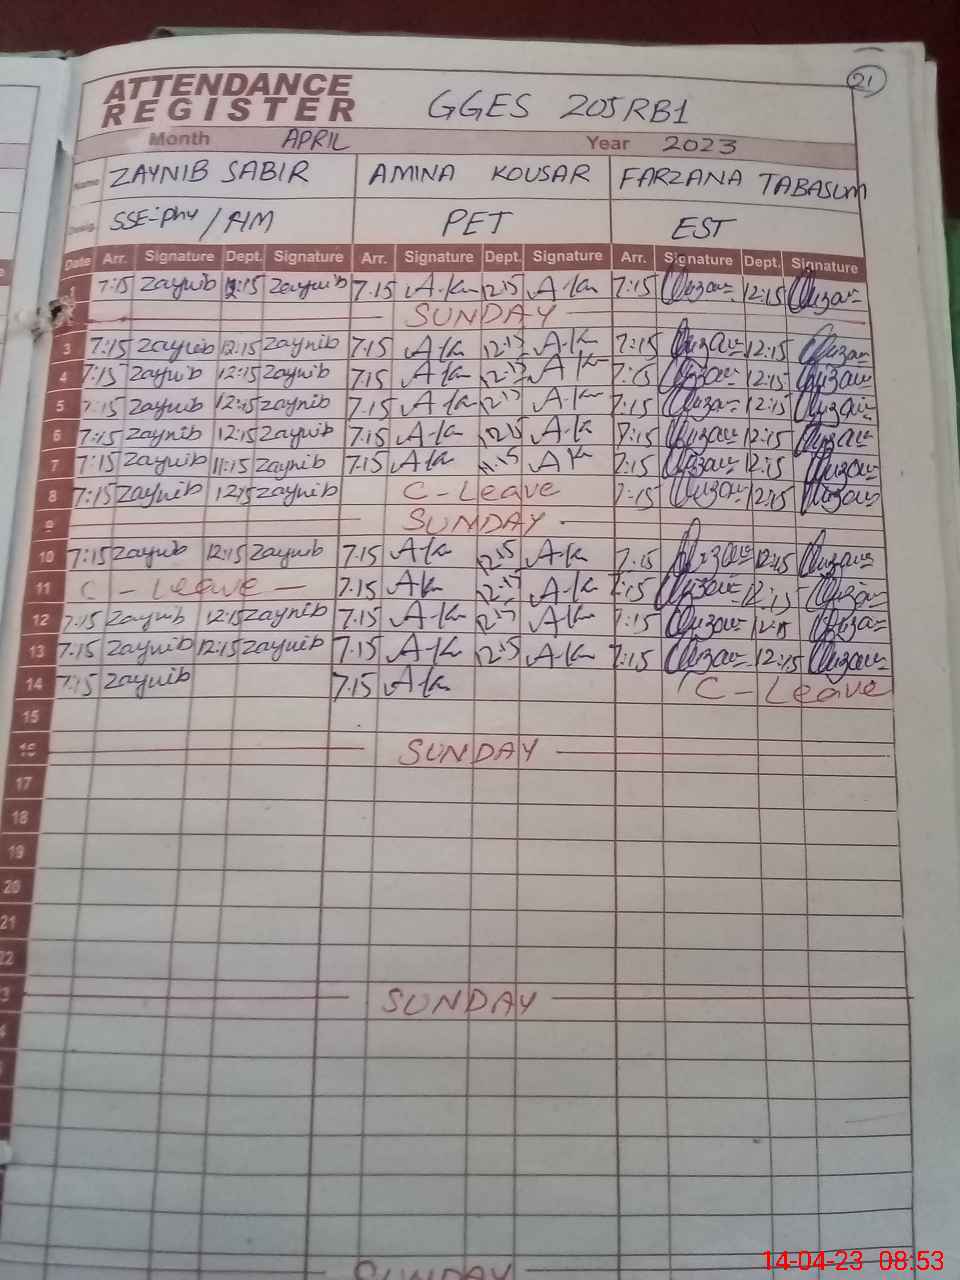 21
ATTENDANCE
REGISTER GGES 205RB1
Month APRIL Year 2023
Name ZAYNIB SABIR AMINA KOUSAR FARZANA TABASUM
Desig. SSE-Phy / HM PET EST
Date Arr. Signature Dept. Signature Arr. Signature Dept. Signature Arr. Signature Dept. Signature
1 7:15 Zaynib 12:15 Zaynib 7.15 A.K 12.15 A.K 7:15 12:15
SUNDAY
3 7:15 Zaynib 12:15 Zaynib 7.15 A.K 12.15 A.K 7:15 12:15
4 7:15 Zaynib 12:15 Zaynib 7.15 A.K 12.15 A.K 7:15 12:15
5 7:15 Zaynib 12:15 Zaynib 7.15 A.K 12.15 A.K 7:15 12:15
6 7:15 Zaynib 12:15 Zaynib 7.15 A.K 12.15 A.K 7:15 12:15
7 7:15 Zaynib 11:15 Zaynib 7.15 A.K 11.15 A.K 7:15 12:15
8 7:15 Zaynib 12:15 Zaynib C-Leave 7:15 12:15
9 SUNDAY
10 7:15 Zaynib 12:15 Zaynib 7.15 A.K 12.15 A.K 7:15 12:15
11 C - Leave - 7.15 A.K 12.15 A.K 7:15 12:15
12 7:15 Zaynib 12:15 Zaynib 7.15 A.K 12.15 A.K 7:15 12:15
13 7.15 Zaynib 12:15 Zaynib 7.15 A.K 12.15 A.K 7:15 12:15
14 7:15 Zaynib 7.15 A.K C-Leave
15
16 SUNDAY
17
18
19
20
21
22
3 SUNDAY
4
SUNDAY
14-04-23 08:53